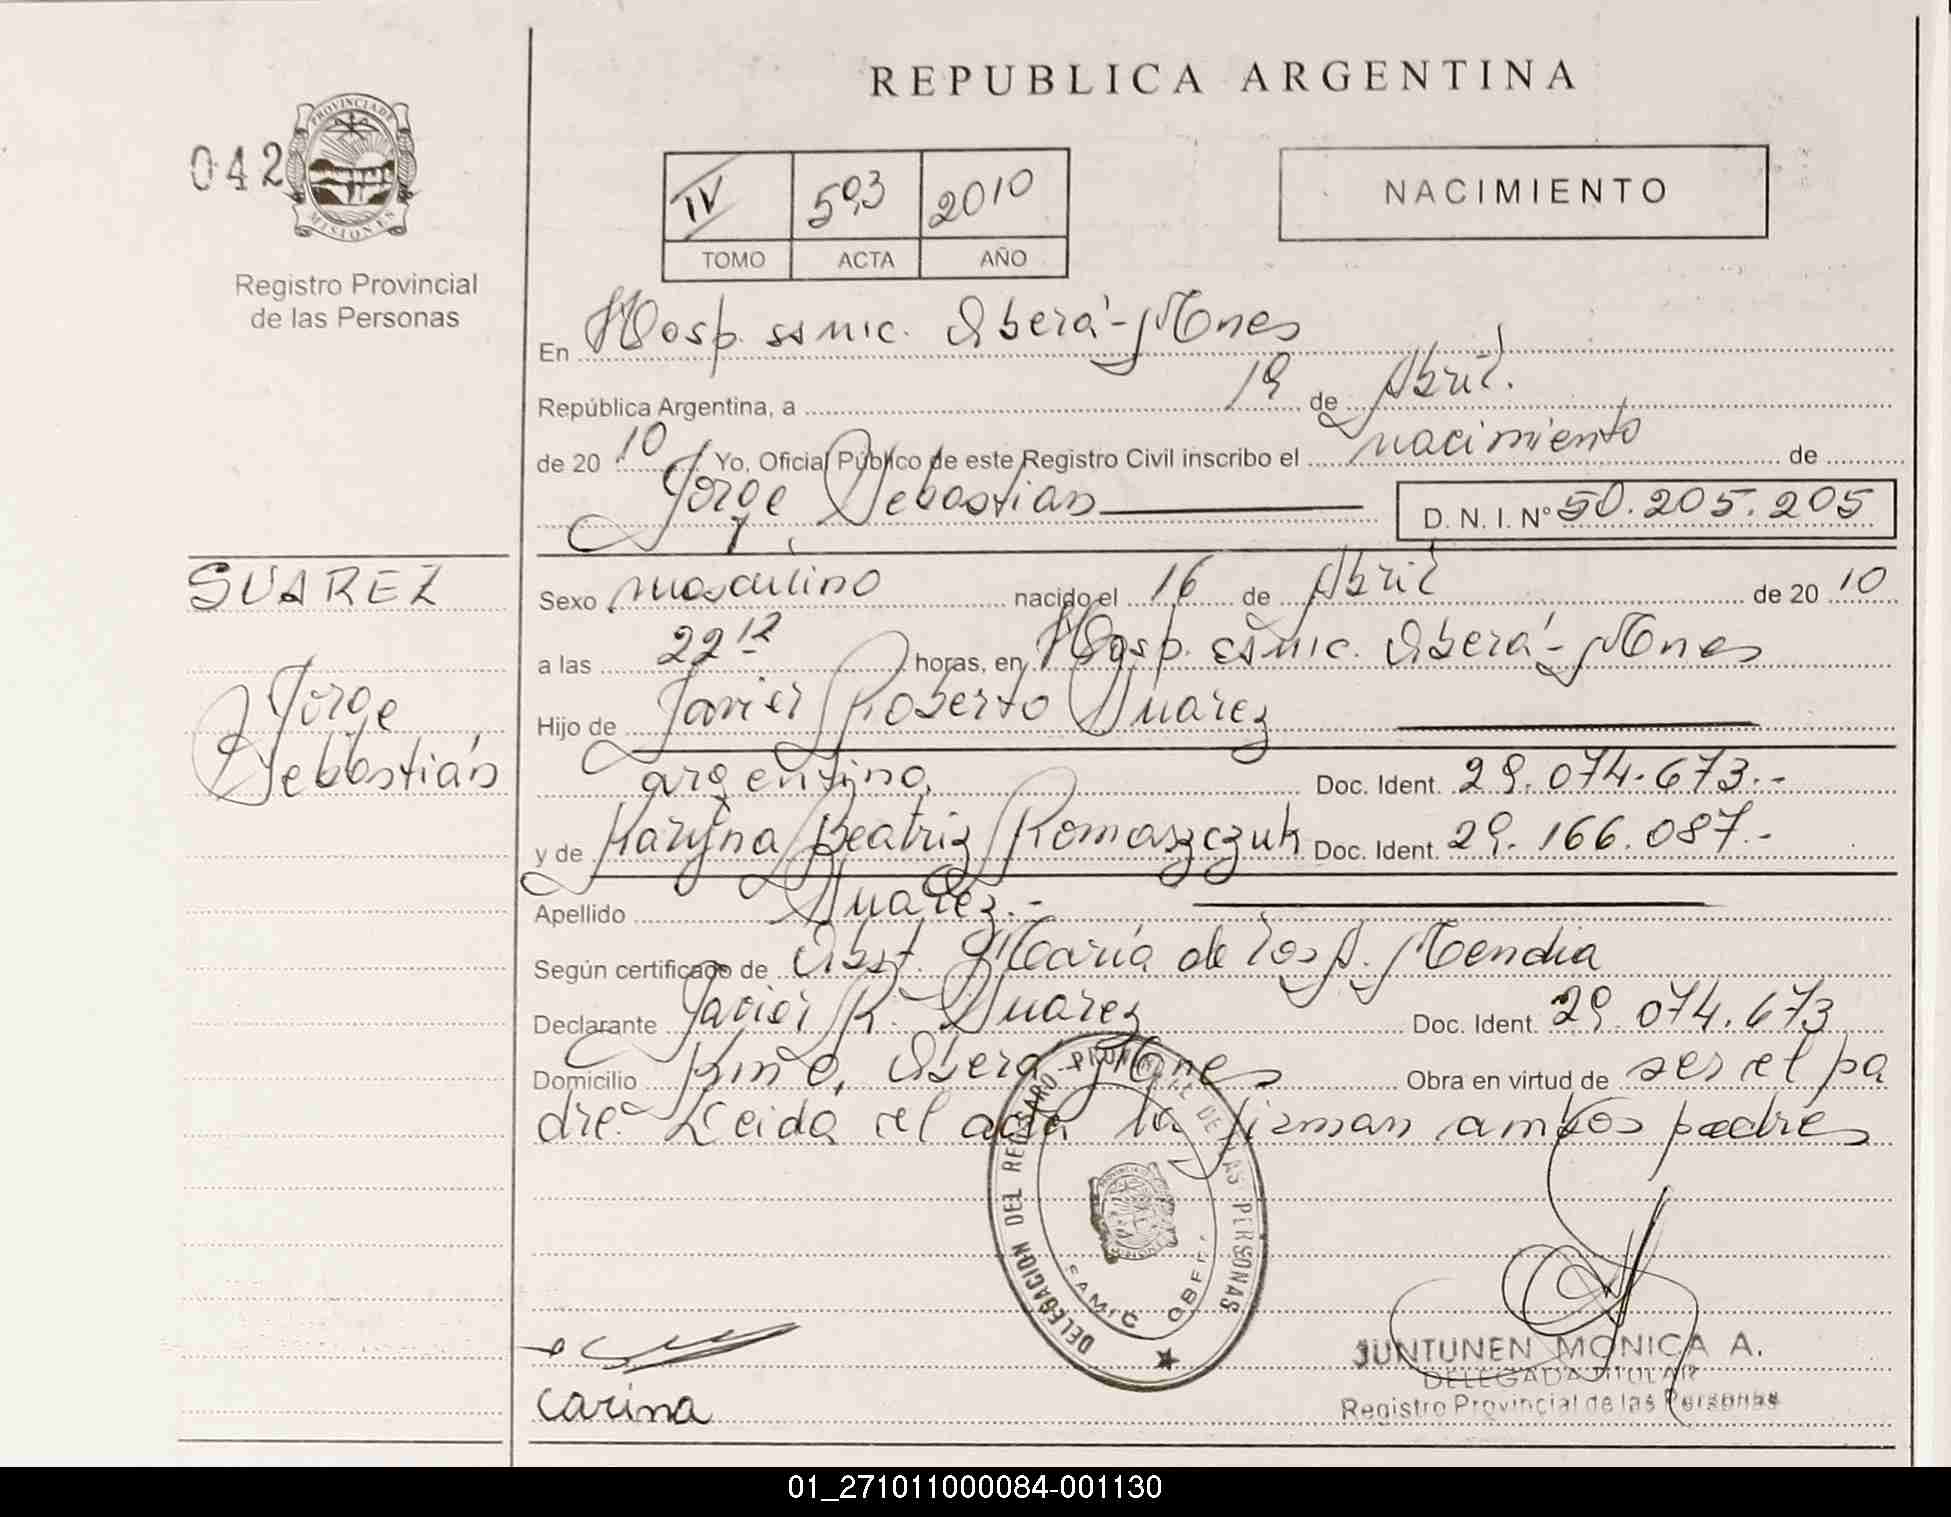 REPUBLICA ARGENTINA
042
PROVINCIA DE
MISIONES
Registro Provincial
de las Personas
IV 593 2010
TOMO ACTA AÑO
NACIMIENTO
En Hosp. samic. Oberá - Mnes
República Argentina, a 19 de Abril.
de 20 10 Yo, Oficial Público de este Registro Civil inscribo el nacimiento de
Jorge Sebastian D. N. I. Nº 50.205.205
SUAREZ
Jorge
Sebastián
Sexo masculino nacido el 16 de Abril de 20 10
a las 22 12 horas, en Hosp. samic. Oberá - Mnes
Hijo de Javier Roberto Suarez
argentino, Doc. Ident. 29.074.673.-
y de Karyna Beatriz Romaszczuk Doc. Ident. 29.166.087.-
Apellido Suarez.-
Según certificado de Obst. María de los A. Mendia
Declarante Javier R. Suarez Doc. Ident. 29.074.673
Domicilio Km 0, Oberá Mnes Obra en virtud de ser el pa
dre. Leida el acta la firman ambos padres
DELEGACION DEL REGISTRO PROVINCIAL DE LAS PERSONAS
SAMIC OBERA
JUNTUNEN MONICA A.
DELEGADA TITULAR
Registro Provincial de las Personas
carina
01_271011000084-001130